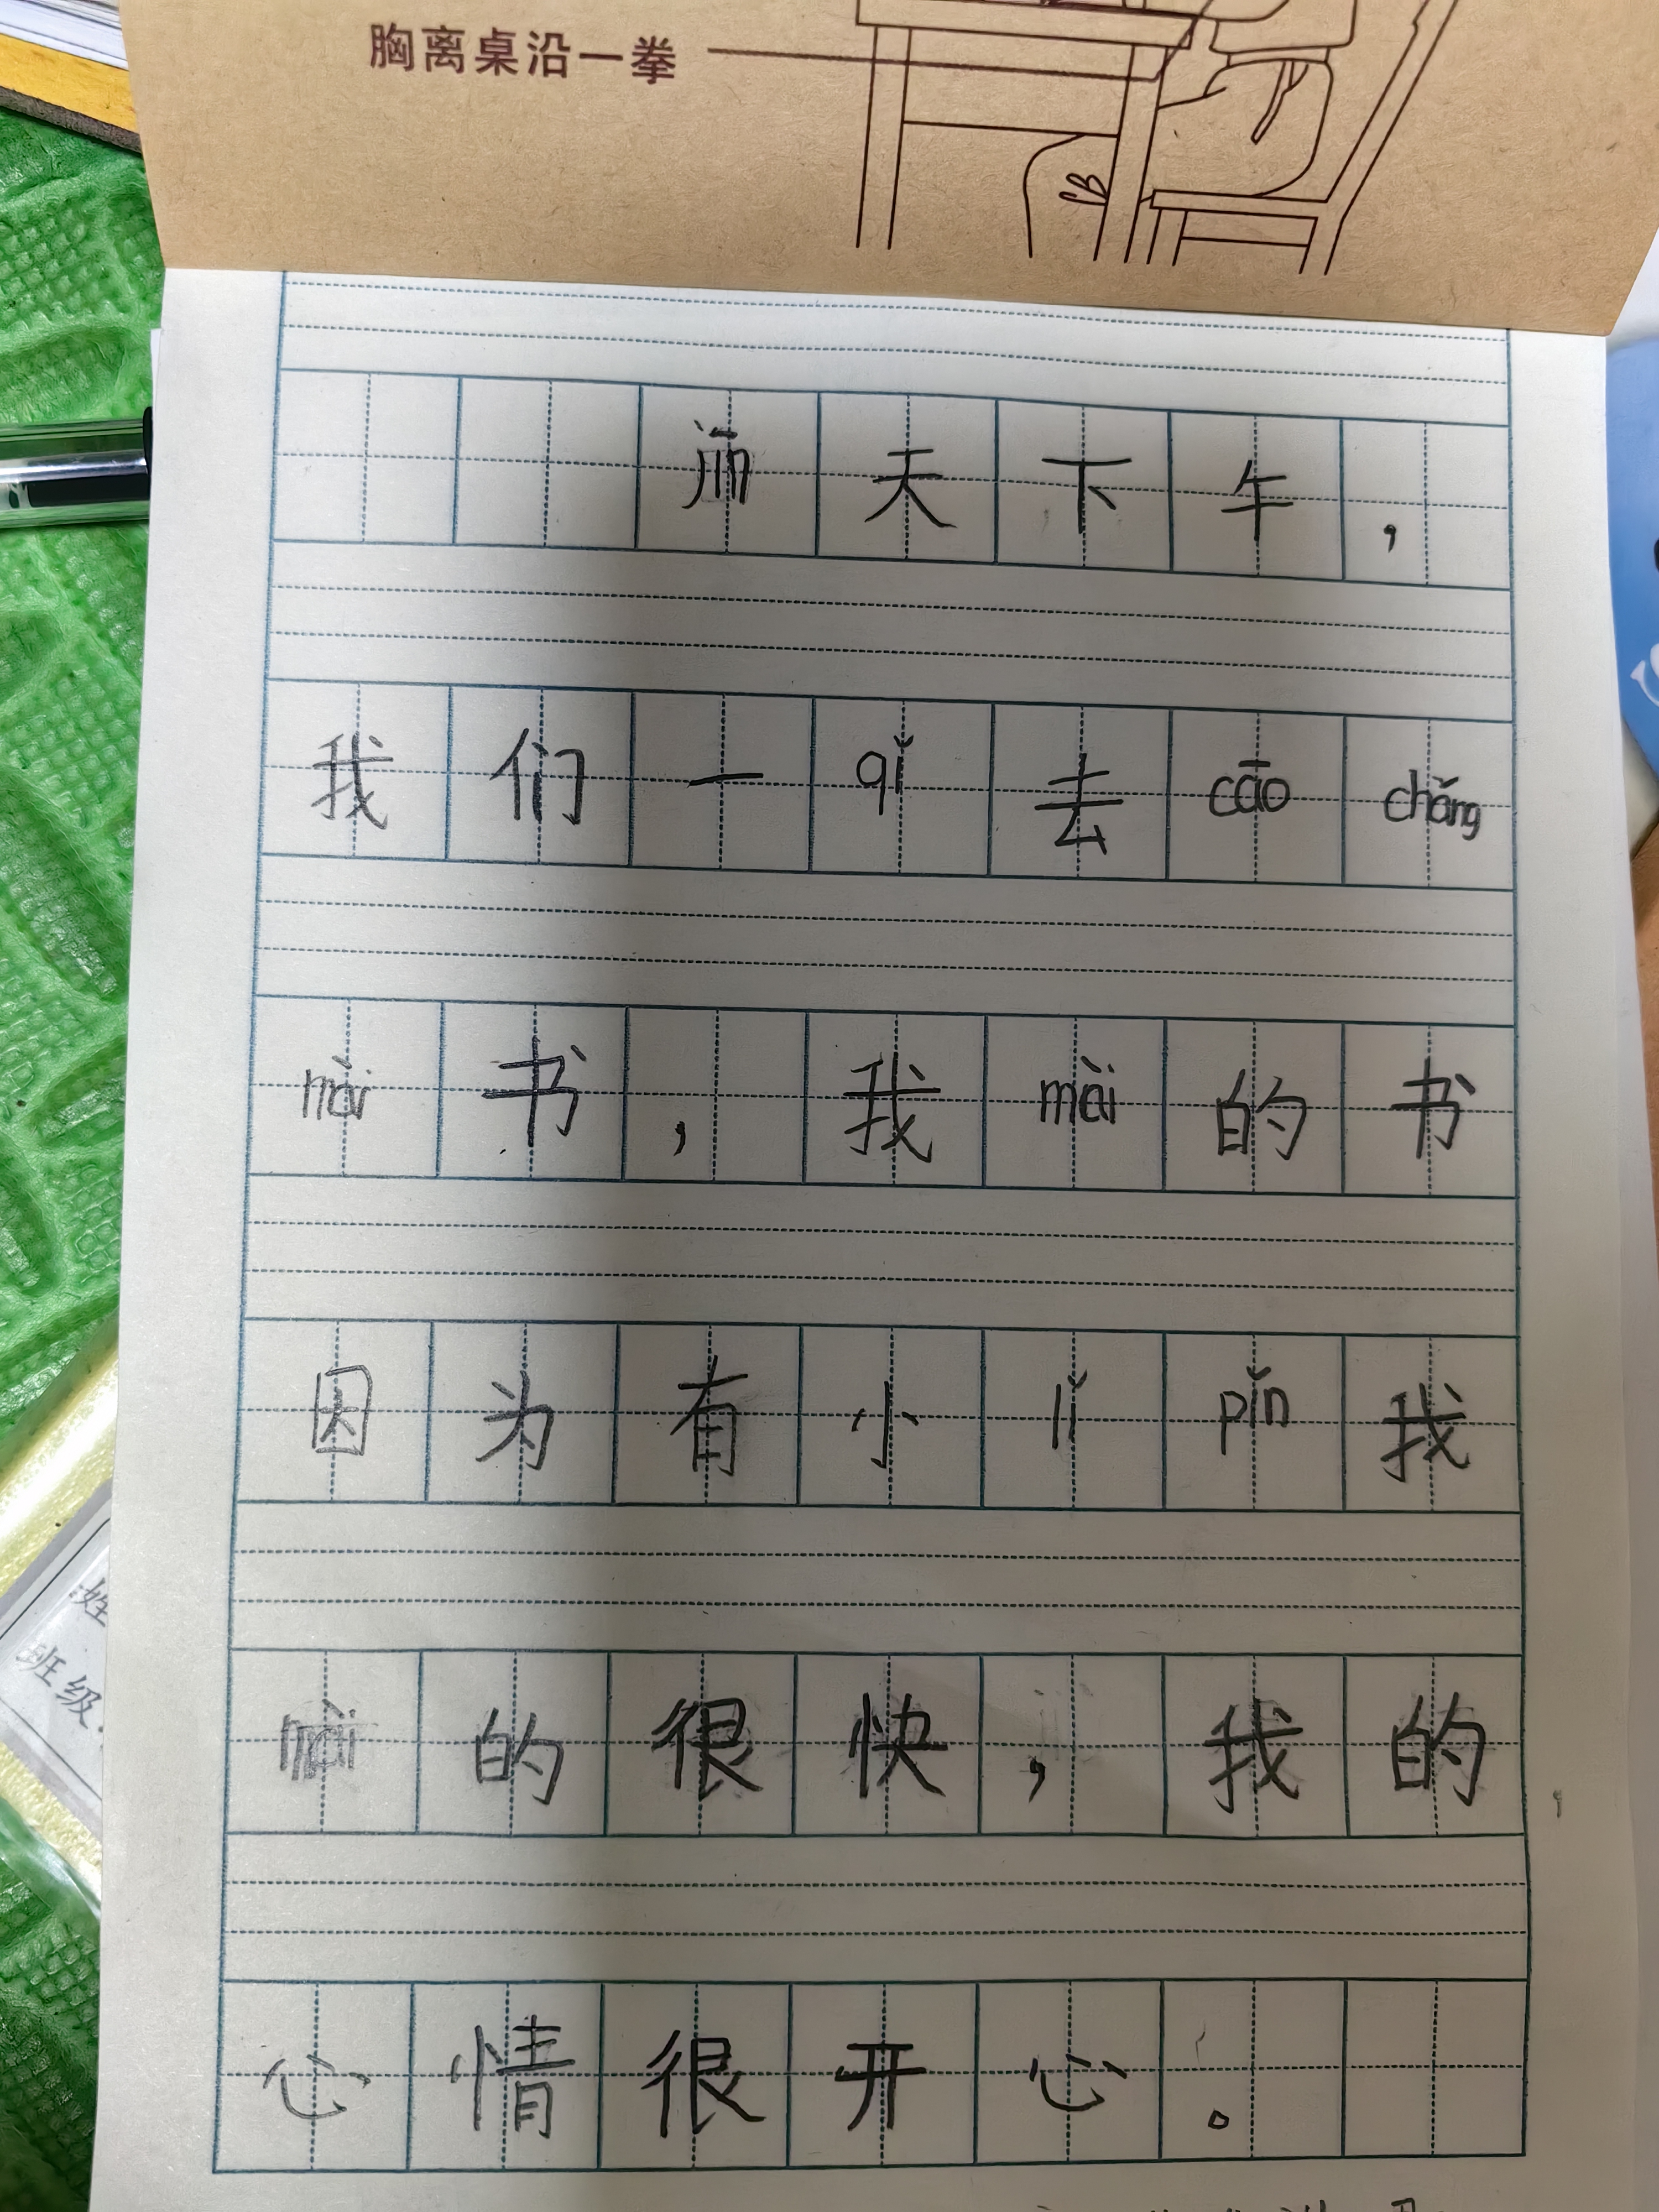 胸离桌沿一拳
天下午，
我们一qǐ去cāochǎng
mài书，我mài的书
因为有小lǐpǐn我
mài的很快，我的
心情很开心。
姓
班级